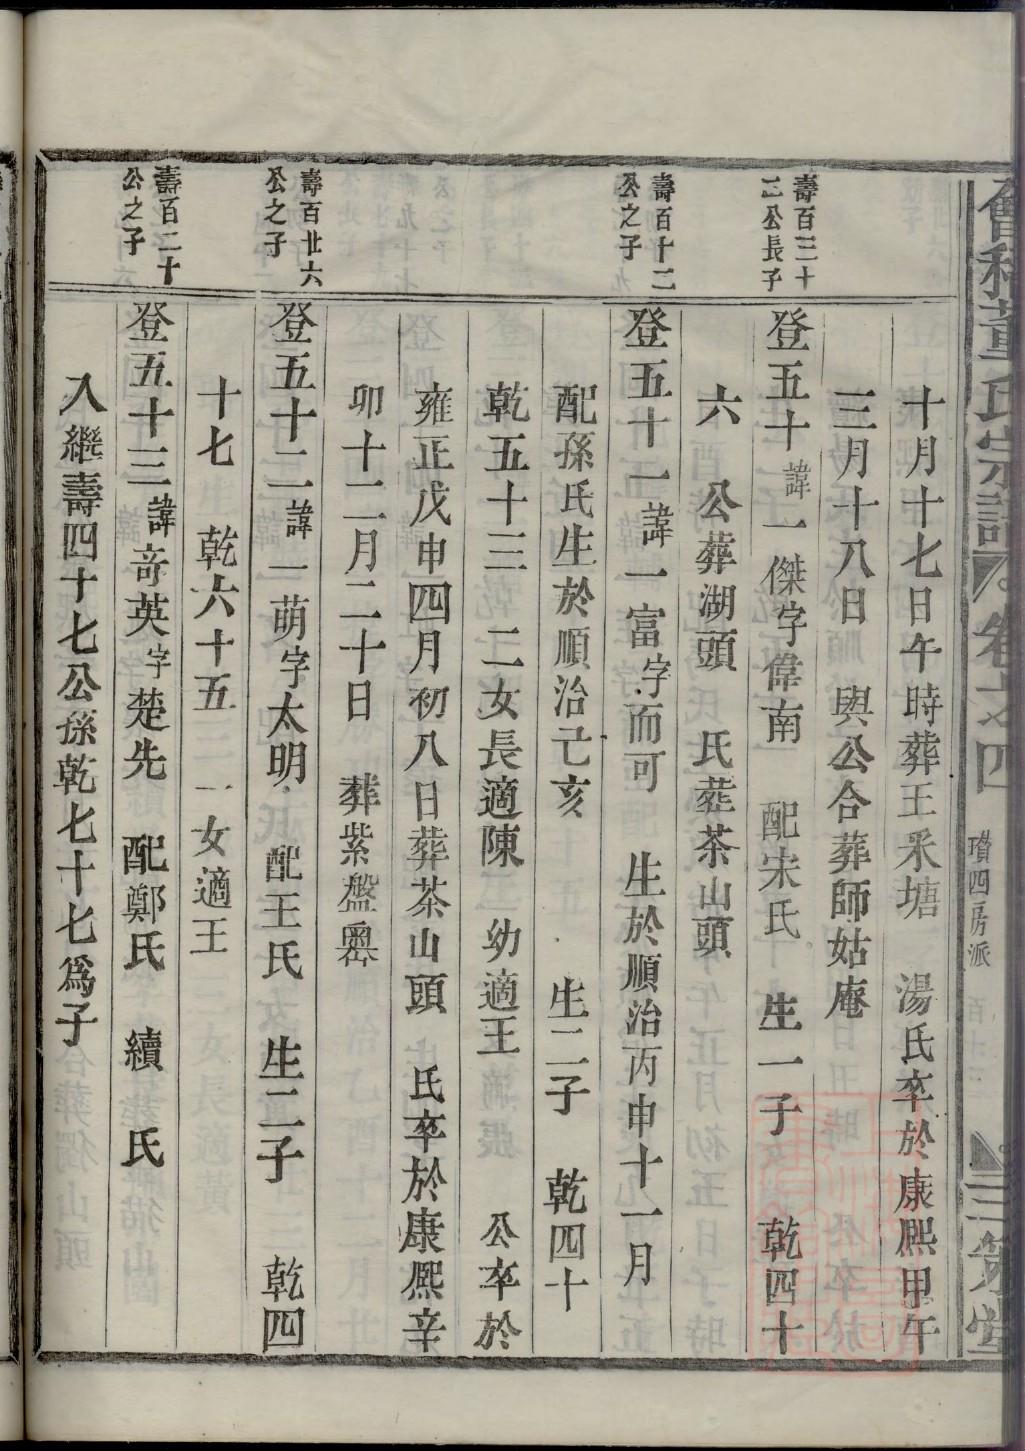 會稽董氏宗譜 卷之四 瓚四房派 三策堂
十月十七日午時葬王釆塘 湯氏卒於康熙甲午
三月十八日 與公合葬師姑庵
壽百三十
二公長子
登五十諱一傑字偉南 配宋氏 生一子 乾四十
六 公葬湖頭 氏葬茶山頭
壽百十二
公之子
登五十一諱一富字而可 生於順治丙申十一月
配孫氏生於順治己亥 生二子 乾四十
乾五十三 二女長適陳 幼適王 公卒於
雍正戊申四月初八日葬茶山頭 氏卒於康熙辛
卯十二月二十日 葬紫盤嶴
壽百廿六
公之子
登五十二諱一萌字太明 配王氏 生二子 乾四
十七 乾六十五 一女適王
壽百二十
公之子
登五十三諱奇英字楚先 配鄭氏 續 氏
入繼壽四十七公孫乾七十七為子